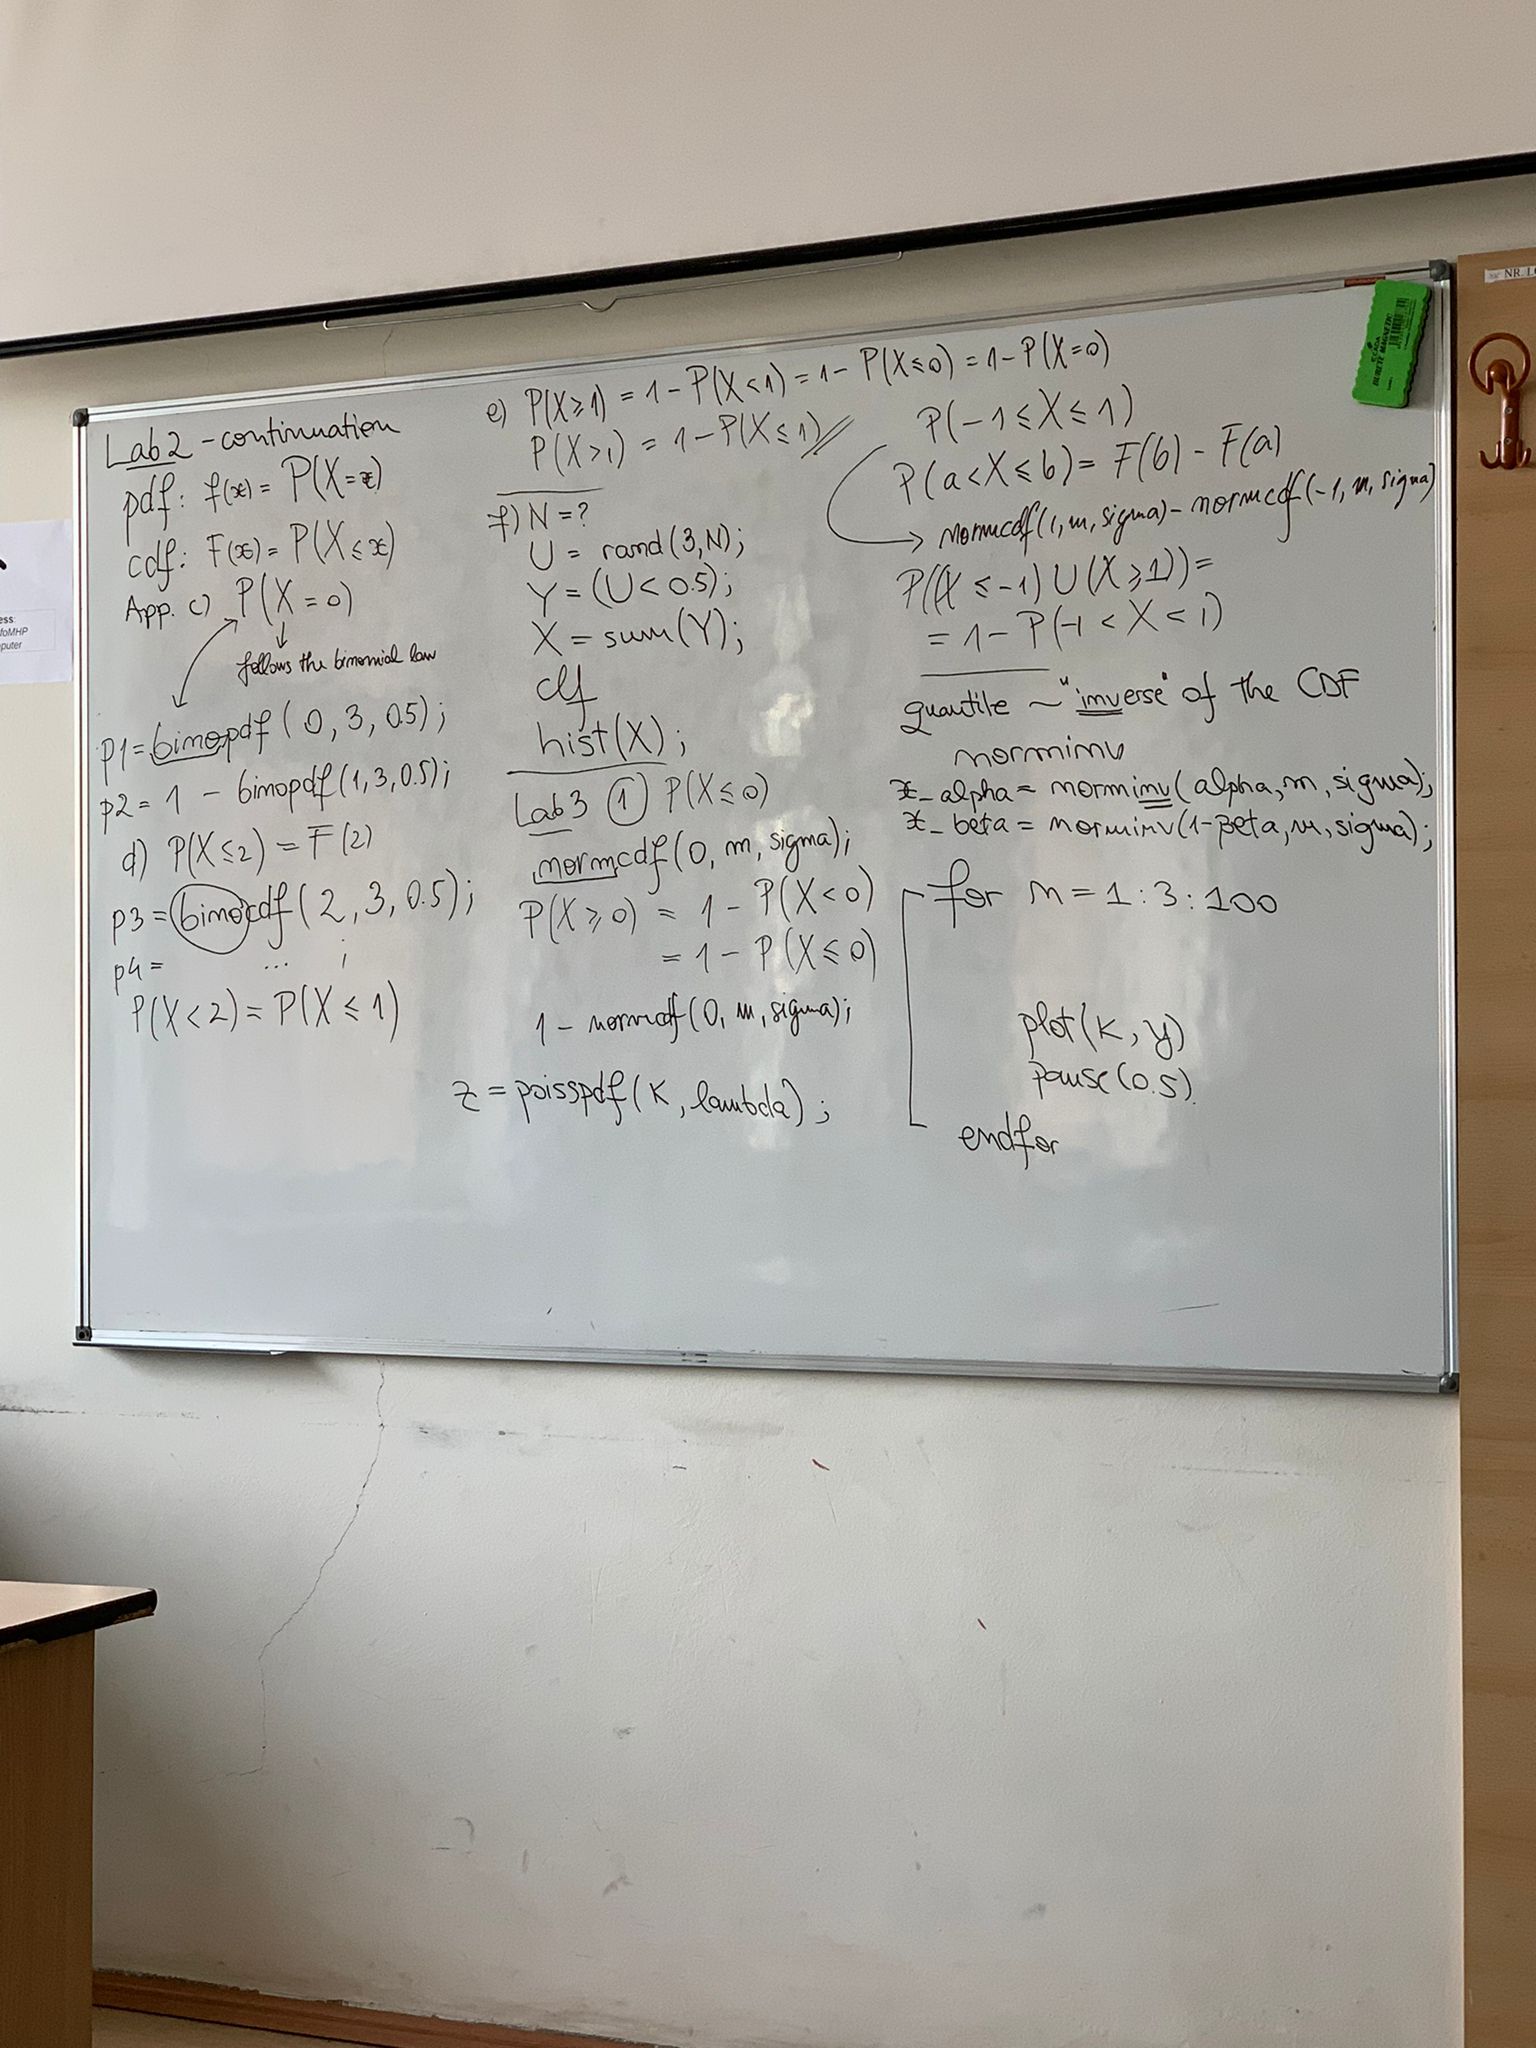 Lab 2 - continuation
pdf: f(x) = P(X=x)
cdf: F(x) = P(X≤x)
App. c) P(X=0)
follows the binomial law
p1 = binopdf(0, 3, 0.5);
p2 = 1 - binopdf(1, 3, 0.5);
d) P(X≤2) = F(2)
p3 = binocdf(2, 3, 0.5);
p4 = ... ;
P(X<2) = P(X≤1)
e) P(X≥1) = 1 - P(X<1) = 1 - P(X≤0) = 1 - P(X=0)
P(X>1) = 1 - P(X≤1)
f) N = ?
U = rand(3, N);
Y = (U < 0.5);
X = sum(Y);
clf
hist(X);
Lab 3 1 P(X≤0)
normcdf(0, m, sigma);
P(X≥0) = 1 - P(X<0)
= 1 - P(X≤0)
1 - normcdf(0, m, sigma);
z = poisspdf(k, lambda);
P(-1≤X≤1)
P(a<X≤b) = F(b) - F(a)
normcdf(1, m, sigma) - normcdf(-1, m, sigma)
P((X≤-1) U (X≥1)) =
= 1 - P(-1<X<1)
quantile ~ "inverse" of the CDF
norminv
x_alpha = norminv(alpha, m, sigma);
x_beta = norminv(1-beta, m, sigma);
for n = 1:3:100
plot(k, y)
pause(0.5)
endfor
BURETE MAGNETIC
NR. I
ess:
foMHP
puter